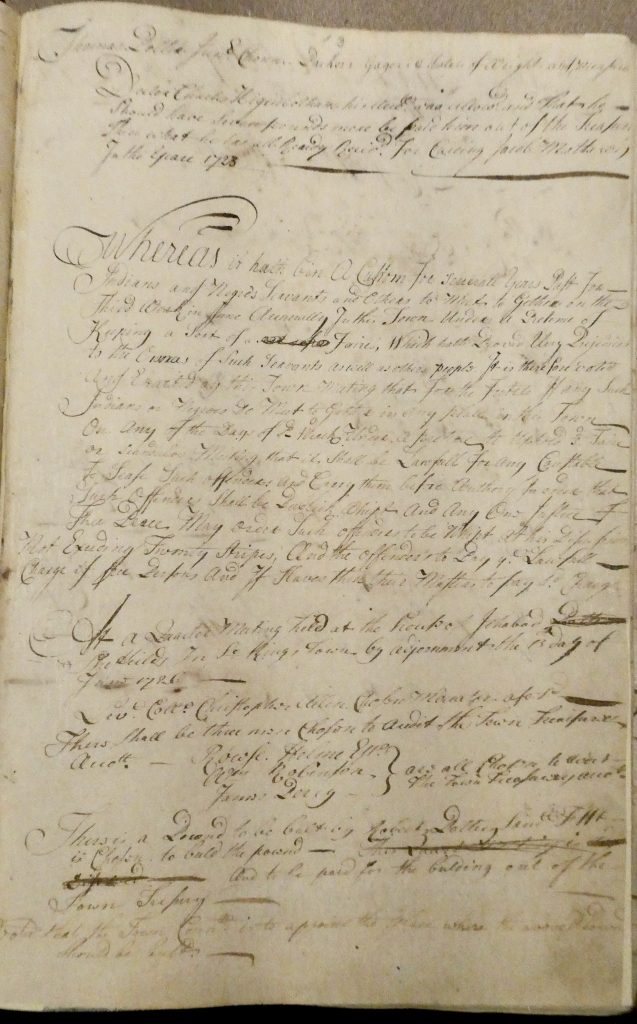 Thomas Potter Junr Chosen Packer Gager & Sealer of Weights and Measures
Voted Charles Higinbotham his and That he
Should have seven pounds more be paid him out of the Treasury
Then what he has all Ready Receivd. for Cureing Jacob
In the Yeare 1728
Whereas it hath bin A Custom for Severall Years Past for
Indians and Negros Servants and Others to Meet to Gether on the
Third Week in June Annually In this Town Under A Pretence of
Keeping a Sort of a Faire, Which hath Proved Very
to the Owners of Such Servants as well as other people It is therefore voted
And Enacted by this Town Meeting that for the future if any Such
Indians or Negros do Meet to Gether in any place in this Town
On Any of the Days of Sd. Week Under a pretence to Uphold Sd. Faire
or Meeting that it Shall be Lawfull for Any Constable
To Sease Such offenders and Carry them before Authority In order that
Such Offenders Shall be Publick Whipt And Any One Justice of
the Peace May order Such offenders to be Whipt at his Discretion
Not Exeeding Twenty Stripes, And the offender to Pay ye. Lawfull
Charge if free Persons And If Slaves then their Masters to pay Sd. Charge
At a Quarter Meeting held at the House of Ichabod
In So. Kings Town by adjornment the day of
June 1726
Lev. Collo. Christopher Allen Chosen Moderator
There Shall be three men Chosen to Audit the Town Treasurers
Acott. — Rowse Helme Esqr.
Robinson
James Perry
are all Chosen to Audit
the Town Treasurers acot
There is a Pound to be built by Robert Potter
is Chosen to build the pound —
And to be paid for the bulding out of the
Town Tresury
Voted that the Town Councill is to apoint the place where the above Pound
Should be built